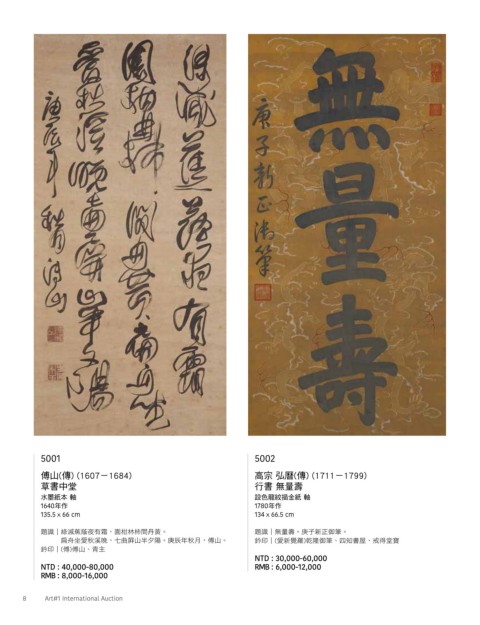 綠減蕉蔭夜有霜
園柑林柿間丹黃扁舟坐
愛秋溪晚七曲屏山半夕陽
庚辰年秋月傅山
無量壽
庚子新正御筆
5001
傅山(傳) (1607－1684)
草書中堂
水墨紙本 軸
1640年作
135.5 x 66 cm
題識｜綠減蕉蔭夜有霜，園柑林柿間丹黃。
扁舟坐愛秋溪晚，七曲屏山半夕陽。庚辰年秋月，傅山。
鈐印｜(傅)傅山、青主
NTD : 40,000-80,000
RMB : 8,000-16,000
5002
高宗 弘曆(傳) (1711－1799)
行書 無量壽
設色龍紋描金紙 軸
1780年作
134 x 66.5 cm
題識｜無量壽。庚子新正御筆。
鈐印｜(愛新覺羅)乾隆御筆、四知書屋、戒得堂寶
NTD : 30,000-60,000
RMB : 6,000-12,000
8 Art#1 International Auction